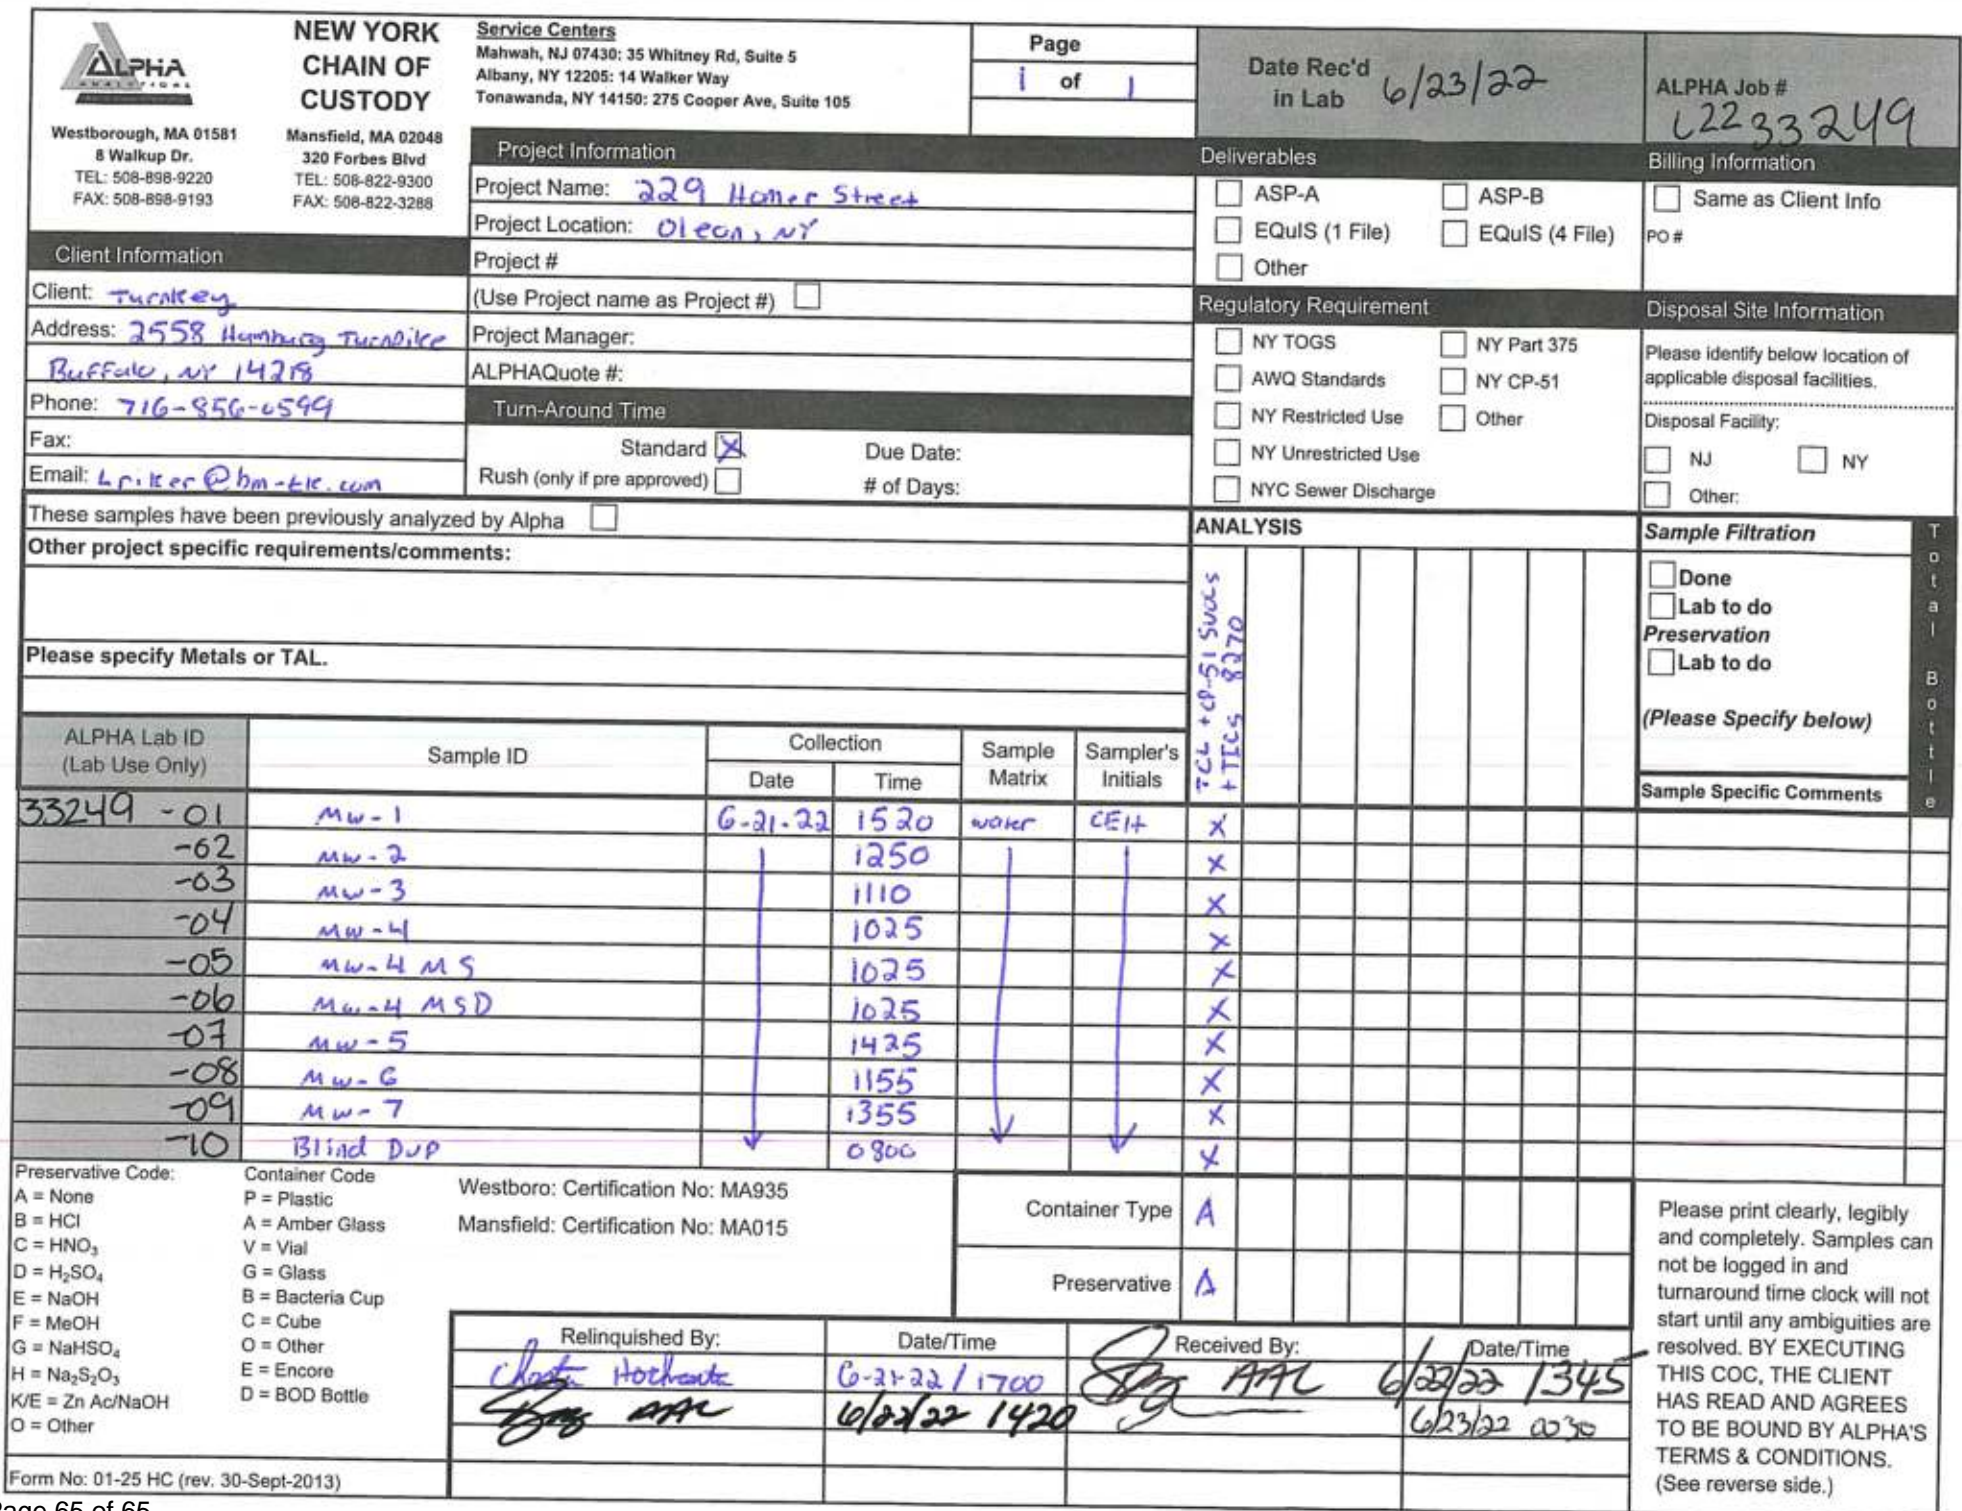 ALPHA
ANALYTICAL
Westborough, MA 01581
8 Walkup Dr.
TEL: 508-898-9220
FAX: 508-898-9193
NEW YORK
CHAIN OF
CUSTODY
Mansfield, MA 02048
320 Forbes Blvd
TEL: 508-822-9300
FAX: 508-822-3288
Service Centers
Mahwah, NJ 07430: 35 Whitney Rd, Suite 5
Albany, NY 12205: 14 Walker Way
Tonawanda, NY 14150: 275 Cooper Ave, Suite 105
Page
1 of 1
Date Rec'd
in Lab 6/23/22
ALPHA Job #
L2233249
Project Information
Project Name: 229 Homer Street
Project Location: Olean, NY
Project #
(Use Project name as Project #)
Project Manager:
ALPHAQuote #:
Turn-Around Time
Standard X Due Date:
Rush (only if pre approved) # of Days:
Client Information
Client: Turnkey
Address: 2558 Hamburg Turnpike
Buffalo, NY 14218
Phone: 716-856-0599
Fax:
Email: Lriker@bm-tk.com
Deliverables
ASP-A ASP-B
EQuIS (1 File) EQuIS (4 File)
Other
Regulatory Requirement
NY TOGS NY Part 375
AWQ Standards NY CP-51
NY Restricted Use Other
NY Unrestricted Use
NYC Sewer Discharge
Billing Information
Same as Client Info
PO #
Disposal Site Information
Please identify below location of
applicable disposal facilities.
Disposal Facility:
NJ NY
Other:
These samples have been previously analyzed by Alpha
Other project specific requirements/comments:
Please specify Metals or TAL.
ANALYSIS
TCL + CP-51 SVOCs
+ TICs 8270
Sample Filtration
Done
Lab to do
Preservation
Lab to do
(Please Specify below)
Sample Specific Comments
Total Bottle
ALPHA Lab ID
(Lab Use Only)
Sample ID
Collection
Date Time
Sample
Matrix
Sampler's
Initials
33249 -01 MW-1 6-21-22 1520 water CEH X
-02 MW-2 1250 X
-03 MW-3 1110 X
-04 MW-4 1025 X
-05 MW-4 MS 1025 X
-06 MW-4 MSD 1025 X
-07 MW-5 1425 X
-08 MW-6 1155 X
-09 MW-7 1355 X
-10 Blind Dup 0800 X
Preservative Code:
A = None
B = HCl
C = HNO3
D = H2SO4
E = NaOH
F = MeOH
G = NaHSO4
H = Na2S2O3
K/E = Zn Ac/NaOH
O = Other
Container Code
P = Plastic
A = Amber Glass
V = Vial
G = Glass
B = Bacteria Cup
C = Cube
O = Other
E = Encore
D = BOD Bottle
Westboro: Certification No: MA935
Mansfield: Certification No: MA015
Container Type A
Preservative A
Relinquished By: Date/Time Received By: Date/Time
6-21-22 / 1700 AAL 6/22/22 1345
AAL 6/22/22 1420 6/23/22 0030
Please print clearly, legibly
and completely. Samples can
not be logged in and
turnaround time clock will not
start until any ambiguities are
resolved. BY EXECUTING
THIS COC, THE CLIENT
HAS READ AND AGREES
TO BE BOUND BY ALPHA'S
TERMS & CONDITIONS.
(See reverse side.)
Form No: 01-25 HC (rev. 30-Sept-2013)
Page 65 of 65